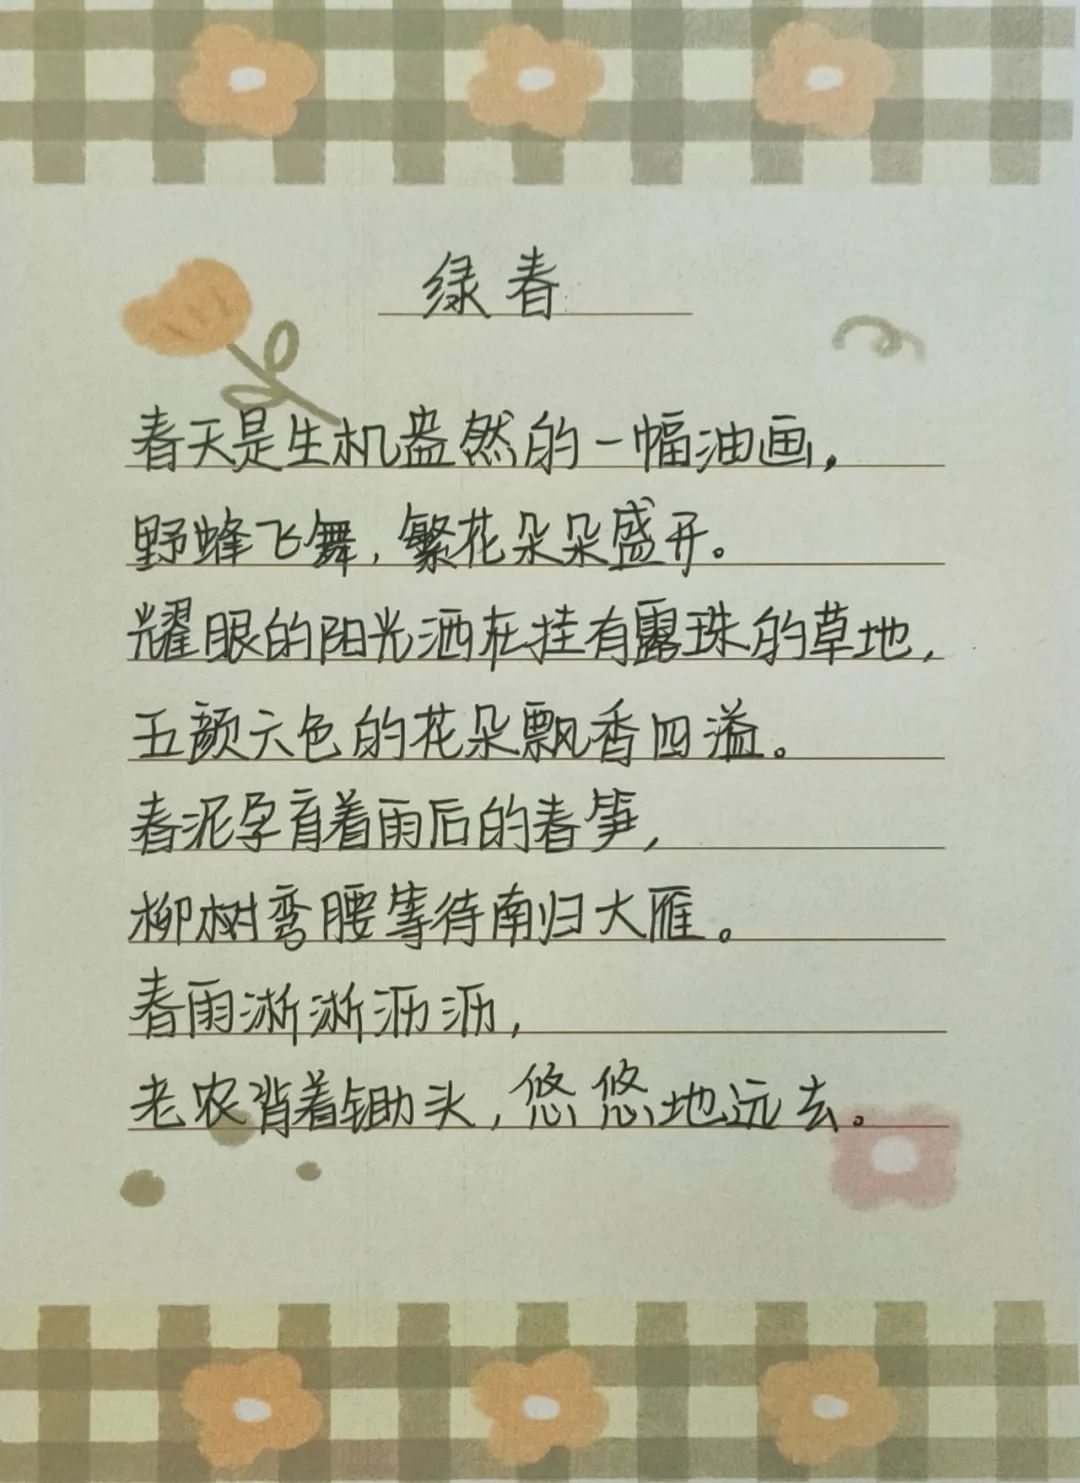 绿春
春天是生机盎然的一幅油画，
野蜂飞舞，繁花朵朵盛开。
耀眼的阳光洒在挂有露珠的草地，
五颜六色的花朵飘香四溢。
春泥孕育着雨后的春笋，
柳树弯腰等待南归大雁。
春雨淅淅沥沥，
老农背着锄头，悠悠地远去。